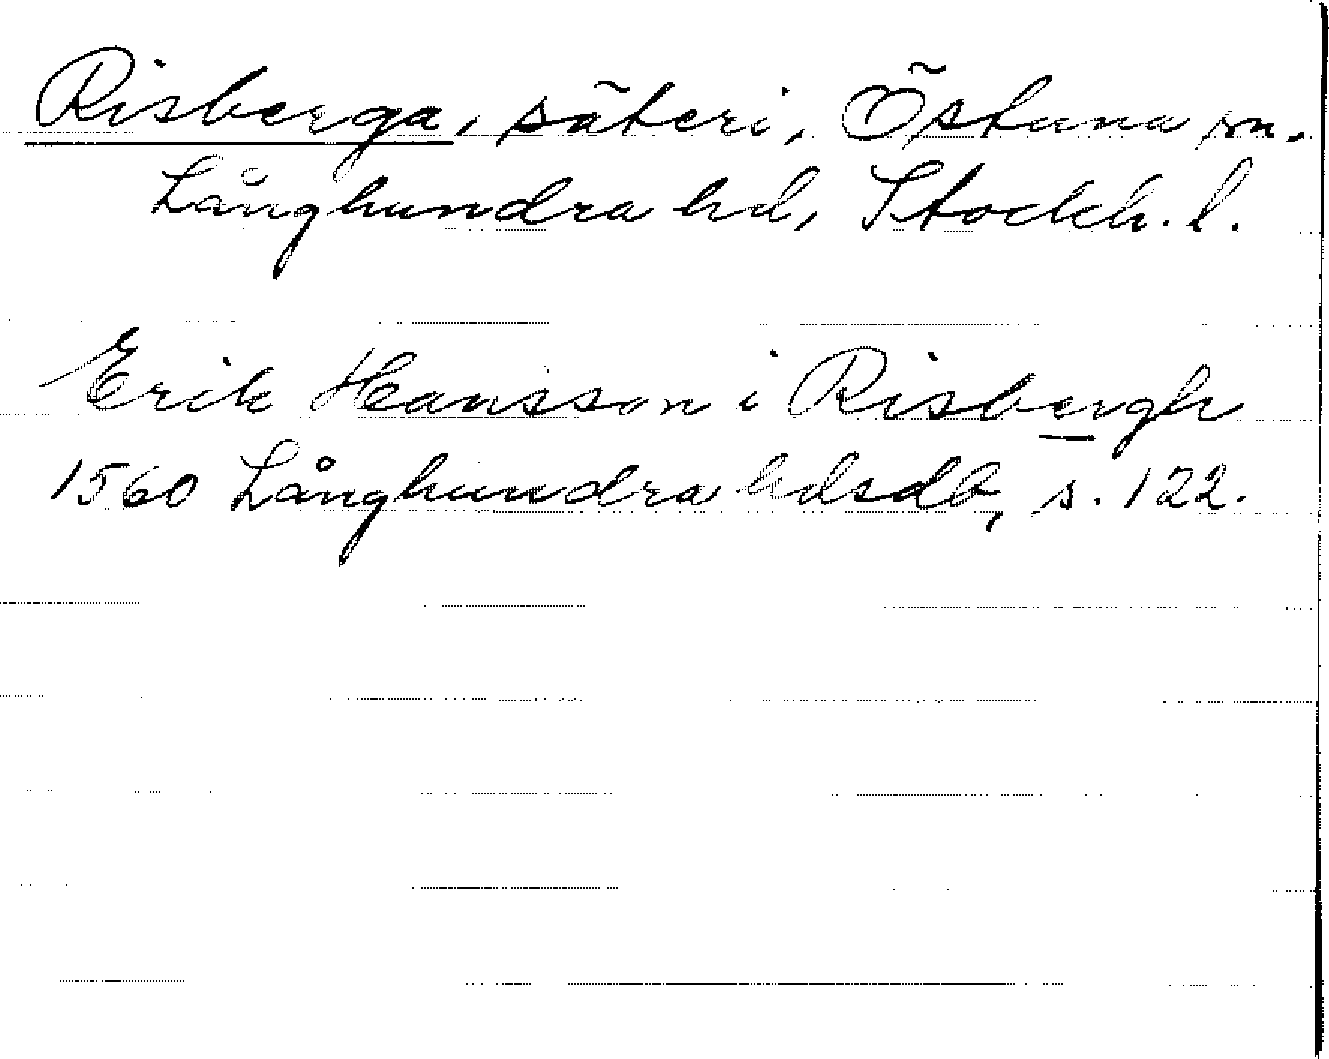 Risberga, säteri, Östuna sn.
Långhundra hd, Stockh. l.
Erik Hansson i Risbergh
1560 Långhundra hdsdb, s. 122.